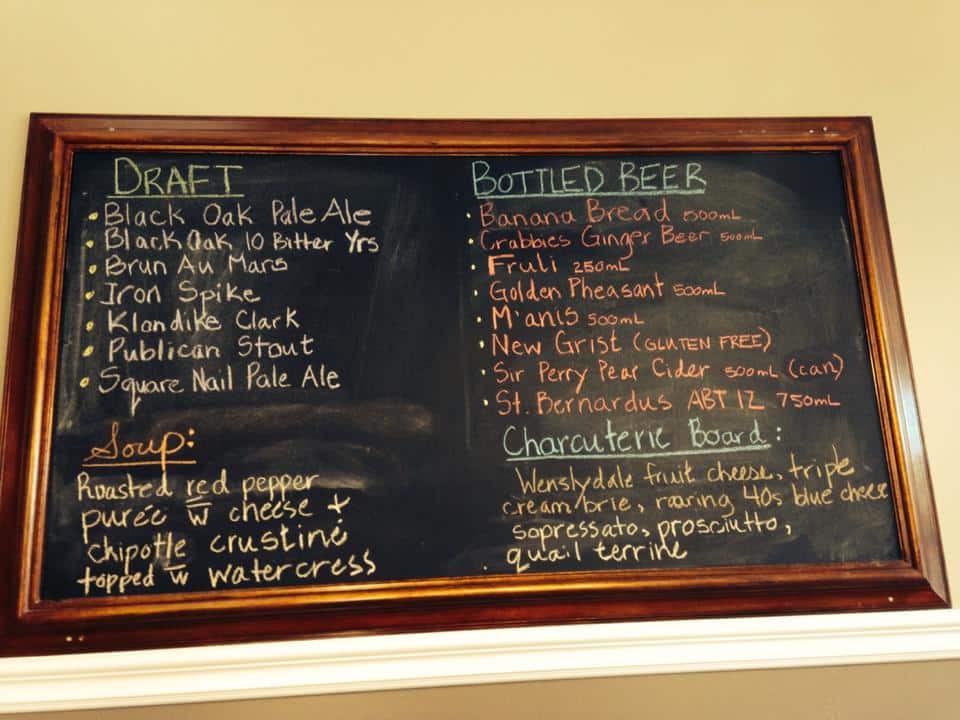 DRAFT
• Black Oak Pale Ale
• Black Oak 10 Bitter Yrs
• Brun Au Mars
• Iron Spike
• Klondike Clark
• Publican Stout
• Square Nail Pale Ale
Soup:
Roasted red pepper
purée w cheese +
chipotle crustini
topped w watercress
BOTTLED BEER
• Banana Bread 500mL
• Crabbies Ginger Beer 500mL
• Fruli 250mL
• Golden Pheasant 500mL
• M'anis 500mL
• New Grist (GLUTEN FREE)
• Sir Perry Pear Cider 500mL (can)
• St. Bernardus ABT 12 750mL
Charcuterie Board:
Wenslydale fruit cheese, triple
cream/brie, roaring 40s blue cheese
sopressato, prosciutto,
quail terrine